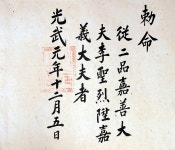 勅命
從二品嘉善大
夫李聖烈陞嘉
義大夫者
光武元年十二月五日